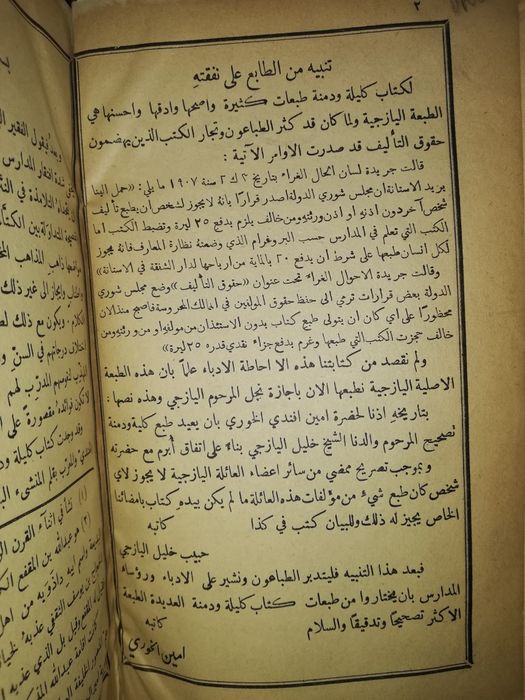 ٢
تنبيه من الطابع على نفقته
لكتاب كليلة ودمنة طبعات كثيرة واصحها وادقها واحسنها هي
الطبعة اليازجية ولما كان قد كثر الطباعون وتجار الكتب الذين يهضمون
حقوق التأليف قد صدرت الاوامر الآتية :
قالت جريدة لسان الحال الغراء بتاريخ ٢ ك ٢ سنة ١٩٠٧ ما يلي: «حمل الينا
بريد الاستانة ان مجلس شورى الدولة اصدر قرارا بانه لا يجوز لشخص أن يطبع تأليف
شخص آخر دون اذنه او اذن ورثته ومن خالف يلزم بدفع ٢٥ ليرة وتضبط الكتب اما
الكتب التي تعلم في المدارس حسب البروغرام الذي وضعته نظارة المعارف فانه يجوز
لكل انسان طبعها على شرط ان يدفع ٢٠ بالماية من ارباحها لدار الشفقة في الاستانة»
وقالت جريدة الاحوال الغراء تحت عنوان «حقوق التأليف» وضع مجلس شورى
الدولة بعض قرارات ترمي الى حفظ حقوق المولفين في الممالك المحروسة فاصبح منذ الان
محظورًا على اي كان ان يتولى طبع كتاب بدون الاستئذان من مولفه او من ورثته ومن
خالف حجزت الكتب التي طبعها وغرم بدفع جزاء نقدي قدره ٢٥ ليرة»
ولم نقصد من كتابتنا هذه الا احاطة الادباء علماً بان هذه الطبعة
الاصلية اليازجية نطبعها الان باجازة نجل المرحوم اليازجي وهذه نصها :
بتاريخه اذنا لحضرة امين افندي الخوري بان يعيد طبع كليلة ودمنة
تصحيح المرحوم والدنا الشيخ خليل اليازجي بناءً على اتفاق أبرم مع حضرته
وبموجب تصريح ممضي من سائر اعضاء العائلة اليازجية لا يجوز لاي
شخص كان طبع شيء من مؤلفات هذه العائلة ما لم يكن بيده كتاب بامضائنا
الخاص يجيز له ذلك وللبيان كتب في كذا كاتبه
حبيب خليل اليازجي
فبعد هذا التنبيه فليتدبر الطباعون ونشير على الادباء ورؤساء
المدارس بان يختاروا من طبعات كتاب كليلة ودمنة العديدة الطبعة
الاكثر تصحيحاً وتدقيقاً والسلام كاتبه
امين الخوري